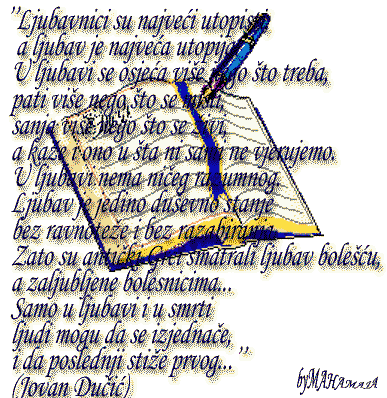 "Ljubavnici su najveći utopisti,
a ljubav je najveća utopija.
U ljubavi se osjeća više nego što treba,
pati više nego što se misli,
sanja više nego što se živi,
a kaže i ono u šta ni sami ne vjerujemo.
U ljubavi nema ničeg razumnog.
Ljubav je jedino duševno stanje
bez ravnoteže i bez razabiranja.
Zato su antički Grci smatrali ljubav bolešću,
a zaljubljene bolesnicima...
Samo u ljubavi i u smrti
ljudi mogu da se izjednače,
i da poslednji stiže prvog... "
(Jovan Dučić)